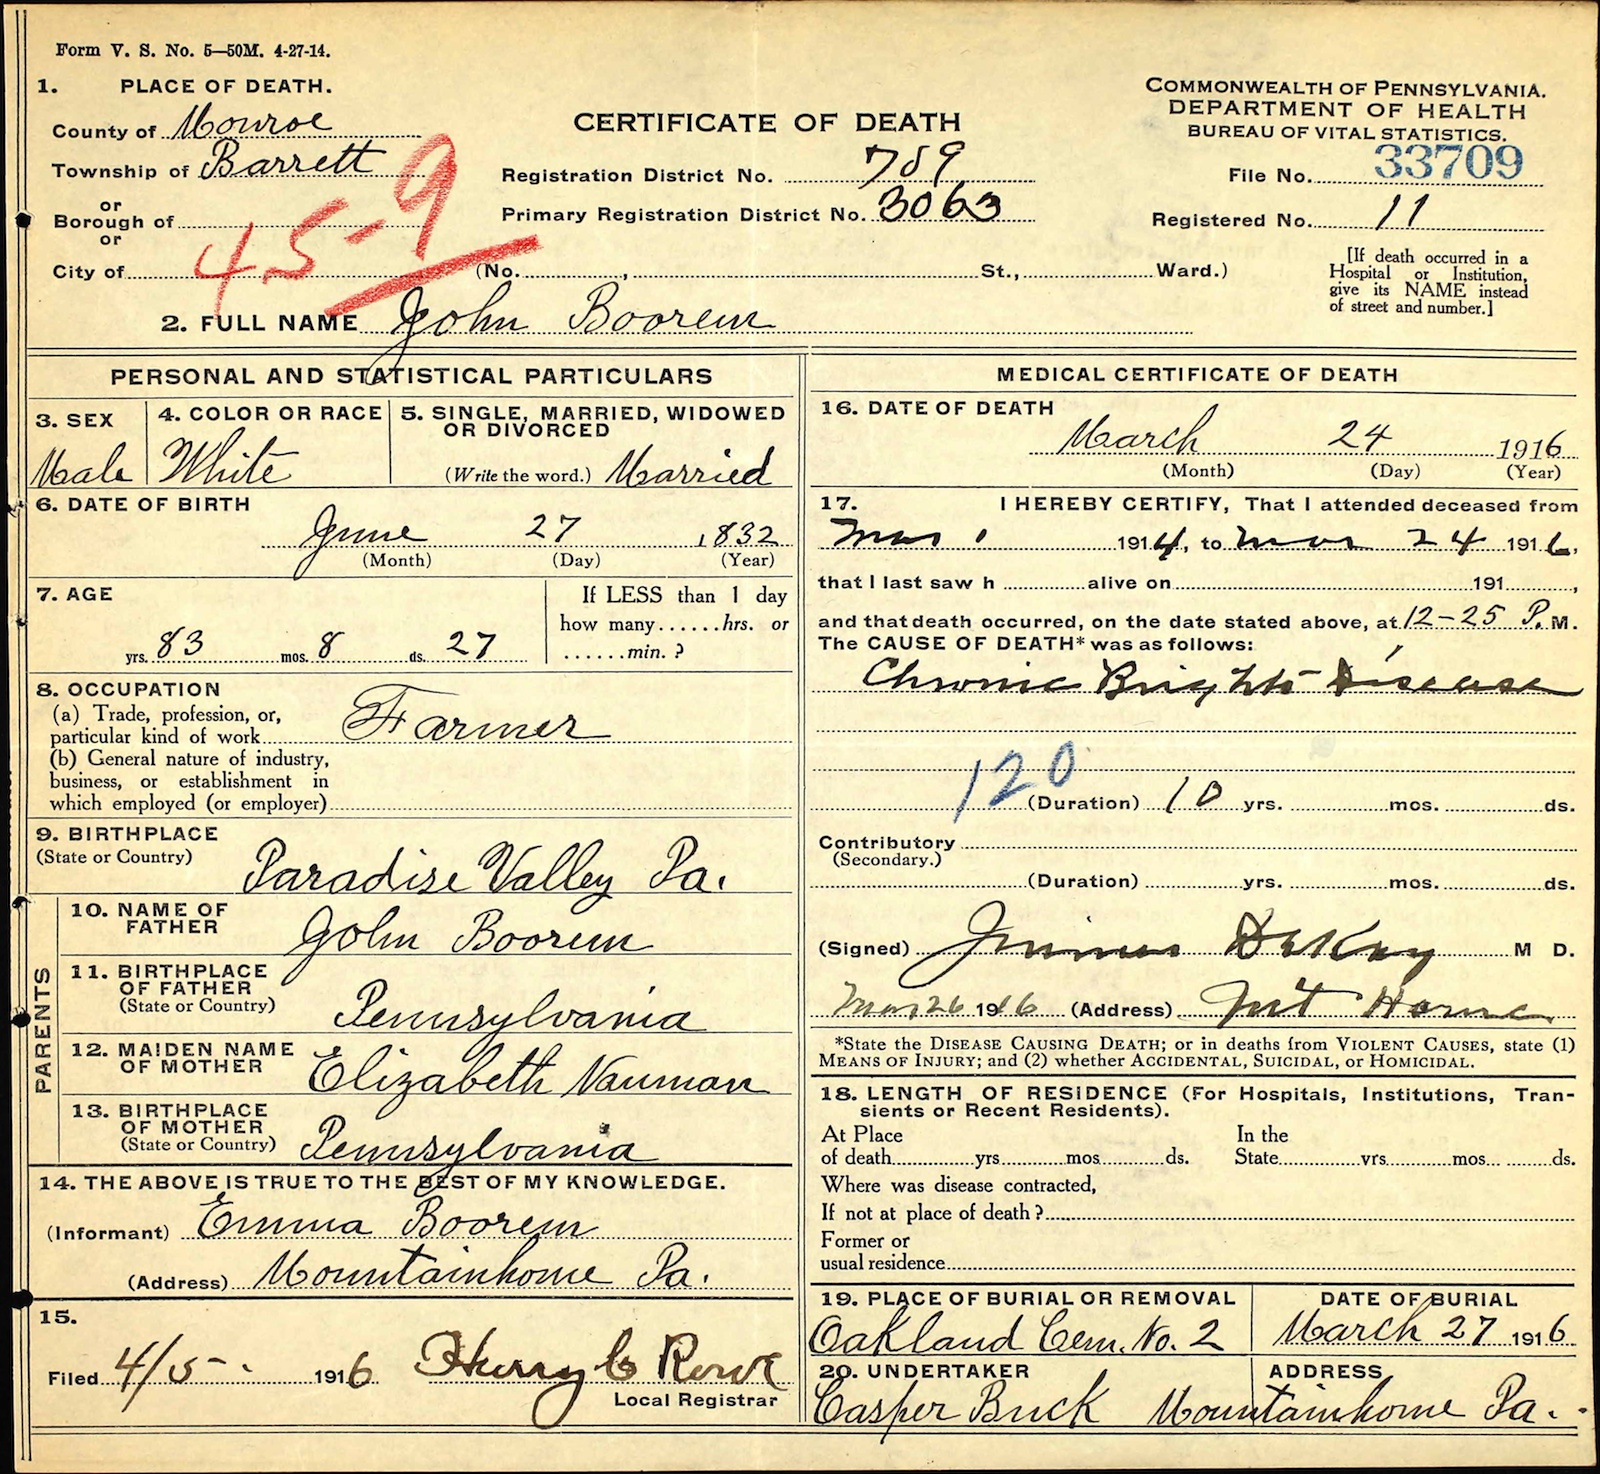 Form V. S. No. 5—50M. 4-27-14.
1. PLACE OF DEATH.
County of Monroe
Township of Barrett
or
Borough of
or
City of
45-9
(No. , St., Ward.)
CERTIFICATE OF DEATH
Registration District No. 789
Primary Registration District No. 3063
COMMONWEALTH OF PENNSYLVANIA.
DEPARTMENT OF HEALTH
BUREAU OF VITAL STATISTICS.
File No. 33709
Registered No. 11
[If death occurred in a
Hospital or Institution,
give its NAME instead
of street and number.]
2. FULL NAME John Boorem
PERSONAL AND STATISTICAL PARTICULARS
3. SEX
Male
4. COLOR OR RACE
White
5. SINGLE, MARRIED, WIDOWED
OR DIVORCED
(Write the word.) Married
6. DATE OF BIRTH
June 27 1832
(Month) (Day) (Year)
7. AGE
yrs. 83 mos. 8 ds. 27
If LESS than 1 day
how many......hrs. or
......min. ?
8. OCCUPATION
(a) Trade, profession, or,
particular kind of work Farmer
(b) General nature of industry,
business, or establishment in
which employed (or employer)
9. BIRTHPLACE
(State or Country)
Paradise Valley Pa.
PARENTS
10. NAME OF
FATHER
John Boorem
11. BIRTHPLACE
OF FATHER
(State or Country)
Pennsylvania
12. MAIDEN NAME
OF MOTHER
Elizabeth Nauman
13. BIRTHPLACE
OF MOTHER
(State or Country)
Pennsylvania
14. THE ABOVE IS TRUE TO THE BEST OF MY KNOWLEDGE.
(Informant) Emma Boorem
(Address) Mountainhome Pa.
15.
Filed 4/5 1916 Harry C Rowe
Local Registrar
MEDICAL CERTIFICATE OF DEATH
16. DATE OF DEATH
March 24 1916
(Month) (Day) (Year)
17. I HEREBY CERTIFY, That I attended deceased from
Mar 1 1914, to Mar 24 1916,
that I last saw h alive on 191 ,
and that death occurred, on the date stated above, at 12-25 P. M.
The CAUSE OF DEATH* was as follows:
Chronic Brights Disease
120
(Duration) 10 yrs. mos. ds.
Contributory
(Secondary.)
(Duration) yrs. mos. ds.
(Signed) M D.
Mar 26 1916 (Address) Mt Home
*State the DISEASE CAUSING DEATH; or in deaths from VIOLENT CAUSES, state (1)
MEANS OF INJURY; and (2) whether ACCIDENTAL, SUICIDAL, or HOMICIDAL.
18. LENGTH OF RESIDENCE (For Hospitals, Institutions, Tran-
sients or Recent Residents).
At Place
of death yrs mos ds.
In the
State yrs mos ds.
Where was disease contracted,
If not at place of death ?
Former or
usual residence
19. PLACE OF BURIAL OR REMOVAL
Oakland Cem. No. 2
DATE OF BURIAL
March 27 1916
20. UNDERTAKER
Casper Buck
ADDRESS
Mountainhome Pa.